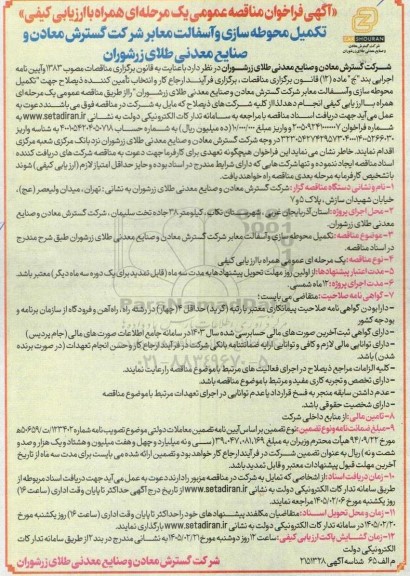 «آگهی فراخوان مناقصه عمومی یک مرحله‌ای همراه با ارزیابی کیفی»
تکمیل محوطه سازی و آسفالت معابر شرکت گسترش معادن و
صنایع معدنی طلای زرشوران
ZARSHOURAN
شرکت گسترش معادن و صنایع معدنی طلای زرشوران در نظر دارد با عنایت به قانون برگزاری مناقصات مصوب ۱۳۸۳ و آیین نامه
اجرایی بند "ج" ماده (۱۲) قانون برگزاری مناقصات، برگزاری فرآیند ارجاع کار و انتخاب تأمین کننده ذیصلاح جهت "تکمیل
محوطه سازی و آسفالت معابر شرکت گسترش معادن و صنایع معدنی طلای زرشوران" را از طریق مناقصه عمومی یک مرحله‌ای
همراه با ارزیابی کیفی انجام دهد لذا از کلیه شرکت‌های ذیصلاح که مایل به شرکت در مناقصه فوق می‌باشند دعوت به
عمل می‌آید جهت دریافت اسناد مناقصه با مراجعه به سامانه تدارکات الکترونیکی دولت به نشانی www.setadiran.ir به
شماره فراخوان
و واریز مبلغ ۱۰/۰۰۰/۰۰۰ (ده میلیون ریال) به شماره حساب
به شناسه واریز
در وجه شرکت گسترش معادن و صنایع معدنی طلای زرشوران نزد بانک مرکزی شعبه مرکزی
اقدام نمایند. خاطر نشان می نماید این فراخوان هیچگونه تعهدی برای کارفرما جهت دعوت به مناقصه شرکت های دریافت کننده
اسناد مناقصه ایجاد ننموده و تنها شرکت هایی که دارای شرایط مندرج در اسناد بوده و حایز حداقل امتیاز لازم (ارزیابی کیفی) شوند
با تشخیص کارفرما به مرحله بعدی مناقصه راه خواهند یافت.
۱- نام و نشانی دستگاه مناقصه گزار: شرکت گسترش معادن و صنایع معدنی طلای زرشوران به نشانی: تهران، میدان ولیعصر (عج)،
خیابان شهیدان سازش، پلاک ۵ و ۷
۲- محل اجرای پروژه: استان آذربایجان غربی، شهرستان تکاب، کیلومتر ۳۸ جاده تخت سلیمان، شرکت گسترش معادن و صنایع
معدنی طلای زرشوران.
۳- موضوع مناقصه: تکمیل محوطه سازی و آسفالت معابر شرکت گسترش معادن و صنایع معدنی طلای زرشوران طبق شرح مندرج
در اسناد مناقصه.
۴- نوع مناقصه: یک مرحله ای عمومی همراه با ارزیابی کیفی
۵- مدت اعتبار پیشنهادها: از اولین روز مهلت تحویل پیشنهادها به مدت سه ماه (قابل تمدید برای یک دوره سه ماه دیگر) معتبر باشد.
۶- مدت اجرای پروژه: ۱۲ ماه شمسی.
۷- گواهی نامه صلاحیت: متقاضی می بایست:
- دارا بودن گواهی نامه صلاحیت پیمانکاری معتبر با رتبه (گرید) حداقل ۴ (چهار) در رشته راه، راه آهن و فرودگاه از سازمان برنامه و
بودجه کشور
- دارای گواهی ثبت آخرین صورت های مالی حسابرسی شده سال ۱۴۰۳ در سامانه جامع اطلاعات صورت های مالی (جام پردیس)
- دارای توانایی مالی لازم و کافی و توانایی ارایه ضمانتنامه بانکی شرکت در فرآیند ارجاع کار و حسن انجام تعهدات (در صورت برنده
شدن) باشد.
- کلیه الزامات مراجع ذیصلاح در اجرای فعالیت های مرتبط با موضوع مناقصه را رعایت نمایند.
- دارای تخصص و تجربه کاری مفید و مرتبط با موضوع مناقصه باشد.
- عدم داشتن سابقه منجر به فسخ قرارداد یا عدم توانایی در اجرای تعهدات مرتبط با موضوع مناقصه
- دارای شخصیت حقوقی باشد.
۸- تأمین مالی: از منابع داخلی شرکت
۹- مبلغ ضمانت نامه و نوع تضمین: نوع تضمین بر اساس آیین نامه تضمین معاملات دولتی موضوع تصویب نامه شماره
مورخ ۹۴/۰۹/۲۲ هیأت محترم وزیران به مبلغ ۳۹٫۰۴۷٫۰۸۱٫۱۶۹ (سی و نه میلیارد و چهل و هفت میلیون و هشتاد و یک هزار و صد و
شصت و نه) ریال به عنوان تضمین شرکت در فرآیند ارجاع کار خواهد بود و تضمین ارائه شده می بایست برای مدت سه ماه از تاریخ
آخرین مهلت قبول پیشنهادات معتبر و قابل تمدید باشد.
۱۰- زمان دریافت اسناد: از اشخاصی که تمایل به شرکت در مناقصه مزبور را دارند دعوت به عمل می آید جهت دریافت اسناد مربوطه از
طریق سامانه تدارکات الکترونیکی دولت به نشانی www.setadiran.ir از تاریخ درج آگهی حداکثر تا پایان وقت اداری (ساعت ۱۶)
روز یکشنبه مورخ ۱۴۰۵/۰۲/۰۶ مراجعه نمایند.
۱۱- زمان و محل تحویل اسناد: متقاضیان مکلفند پیشنهادهای خود را حداکثر تا پایان وقت اداری (ساعت ۱۶) روز یکشنبه مورخ
۱۴۰۵/۰۲/۲۰ در سامانه تدارکات الکترونیکی دولت به نشانی www.setadiran.ir بارگذاری نمایند.
۱۲- زمان گشایش پاکت ارزیابی کیفی: ساعت ۱۰ روز دوشنبه مورخ ۱۴۰۵/۰۲/۲۱ به نشانی مندرج در بند ۲ از طریق سامانه تدارکات
الکترونیکی دولت
م الف ۶۵ شناسه آگهی ۲۱۵۱۳۲۸
شرکت گسترش معادن و صنایع معدنی طلای زرشوران
ParsNamadData
۰۲۱-۸۸۳۴۹۶۷۰-۵